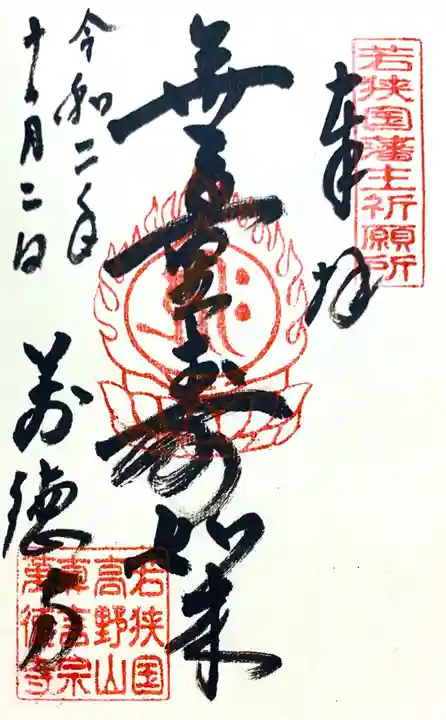 若狭国藩主祈願所
奉拝
無量壽如来
令和二年
十一月二日
萬德寺
若狭国
高野山
真言宗
萬徳寺